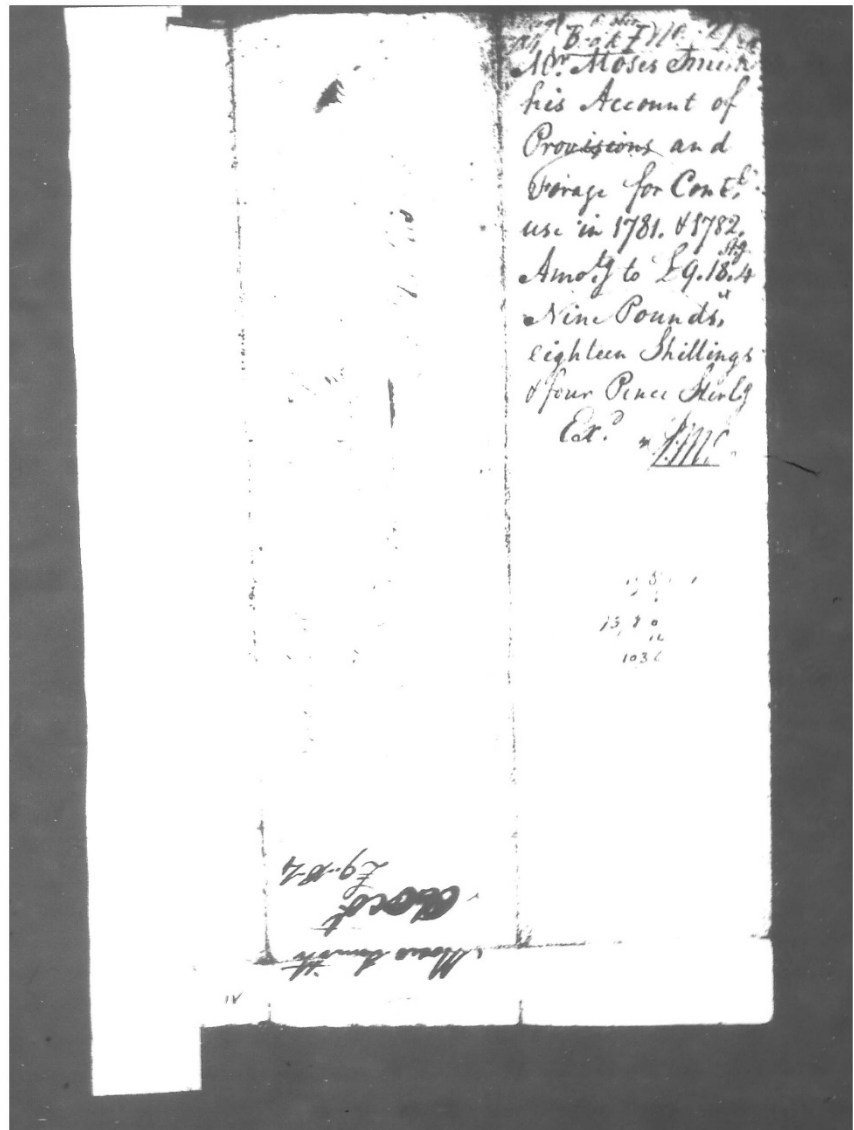 Mr. Moses Smith
his Account of
Provisions and
Forage for Contl.
use in 1781. & 1782.
Amotg to £9.18.4 Stg
Nine Pounds,
eighteen Shillings
& four Pence Sterlg
Exd. J.M.C.
1036
Moses Smith
Accot
£9-18-4